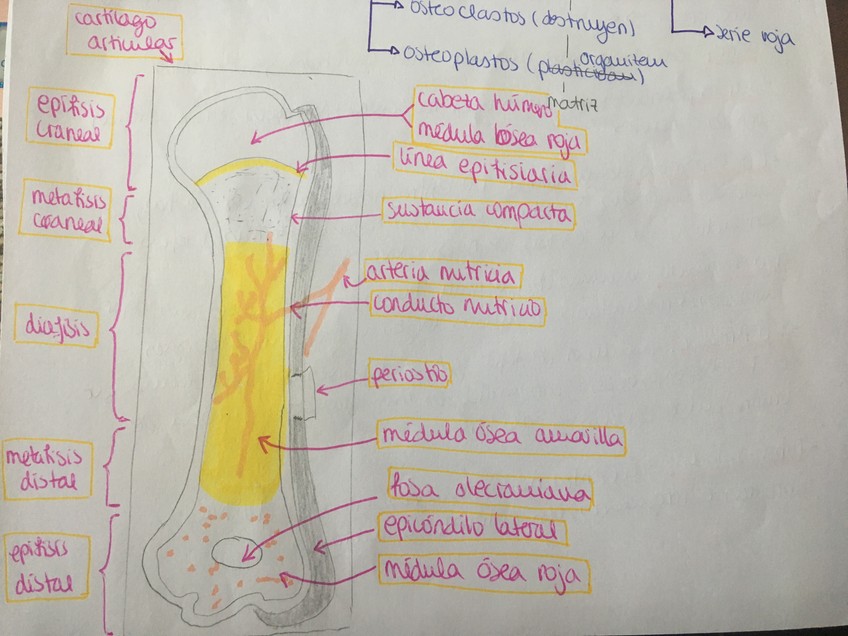 osteoclastos (destruyen)
osteoplastos (plasticidad)
organizan
matriz
serie roja
cartílago
articular
epífisis
craneal
metafisis
craneal
diafisis
metafisis
distal
epifisis
distal
cabeta húmero
médula ósea roja
línea epifisiaria
sustancia compacta
arteria nutricia
conducto nutricio
periostio
médula ósea amarilla
fosa olecraniana
epicóndilo lateral
médula ósea roja